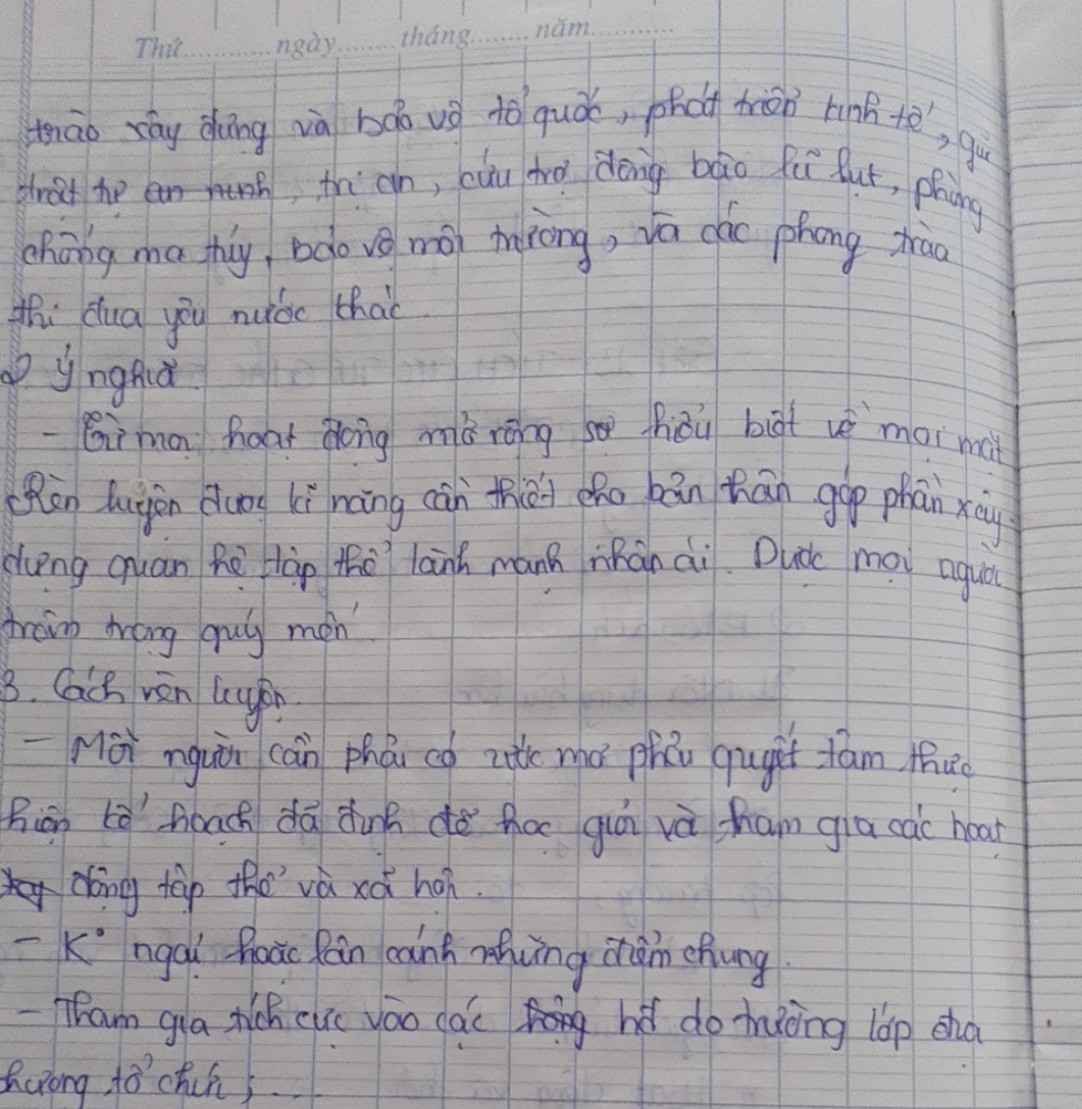 Thứ........... ngày....... tháng........ năm............
xây dựng và bảo vệ tổ quốc, phát triển kinh tế, giữ
trật tự an ninh, trị an, cứu trợ đồng bào lũ lụt, phòng
chống ma túy, bảo vệ môi trường, và các phong trào
thi đua yêu nước khác
ý nghĩa.
- mọi hoạt động mở rộng sự hiểu biết về mọi mặt
Rèn luyện được kĩ năng cần thiết cho bản thân góp phần xây
dựng quan hệ tập thể lành mạnh nhân ái. Được mọi người
trân trọng quý mến
3. Cách rèn luyện.
- Mỗi người cần phải có ước mơ phải quyết tâm thực
hiện kế hoạch đã định để học giỏi và tham gia các hoạt
động tập thể và xã hội.
- K° ngại hoặc lẫn cánh những điểm chung.
- Tham gia tích cực vào các hđ do trường lớp địa
phương tổ chức;....